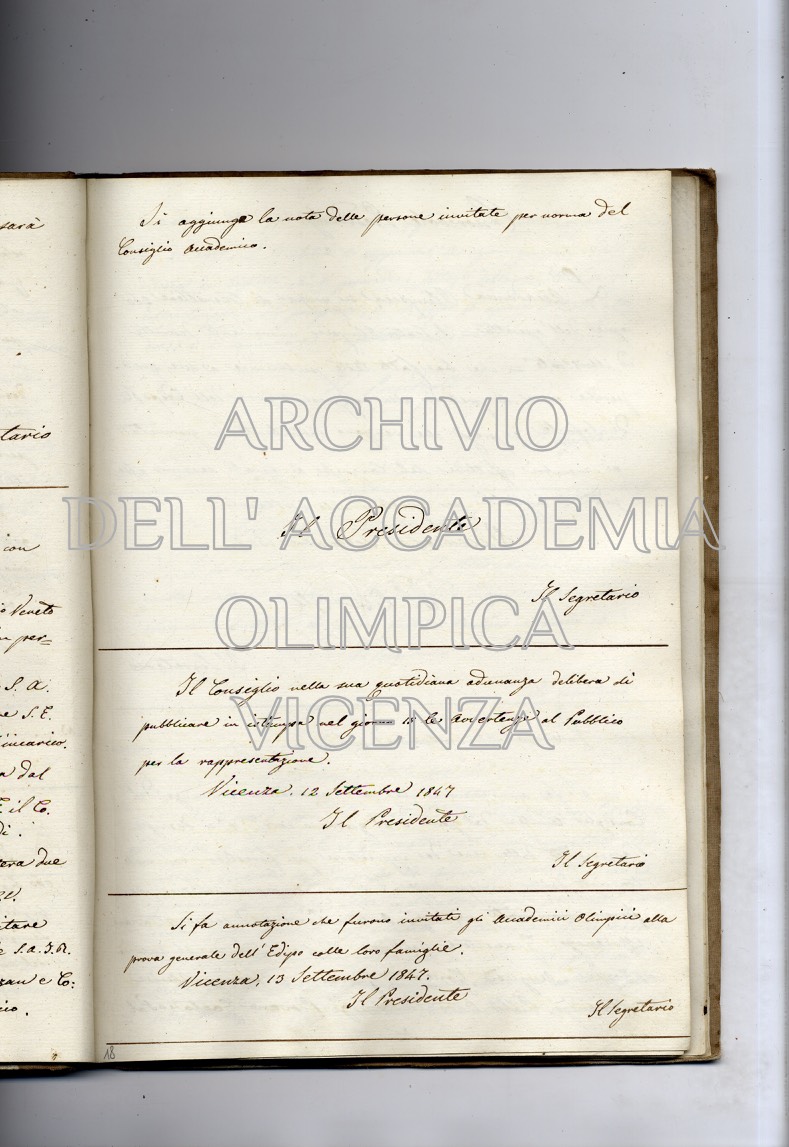 sarà
tario
con
Veneto
per=
S. A.
e S. E.
incarico.
dal
il Co.
di.
era due
itare
e S. A. I. R.
zan e Co:
cio.
Si aggiunge la nota delle persone invitate per norma del
Consiglio Accademico.
ARCHIVIO
DELL' ACCADEMIA
OLIMPICA
VICENZA
Il Presidente
Il Segretario
Il Consiglio nella sua quotidiana adunanza delibera di
pubblicare in istampa nel giorno 15 le Avvertenze al Pubblico
per la rappresentazione.
Vicenza. 12 Settembre 1847
Il Presidente
Il Segretario
Si fa annotazione che furono invitati gli Accademici Olimpici alla
prova generale dell' Edipo colle loro famiglie.
Vicenza, 13 Settembre 1847.
Il Presidente
Il Segretario
18